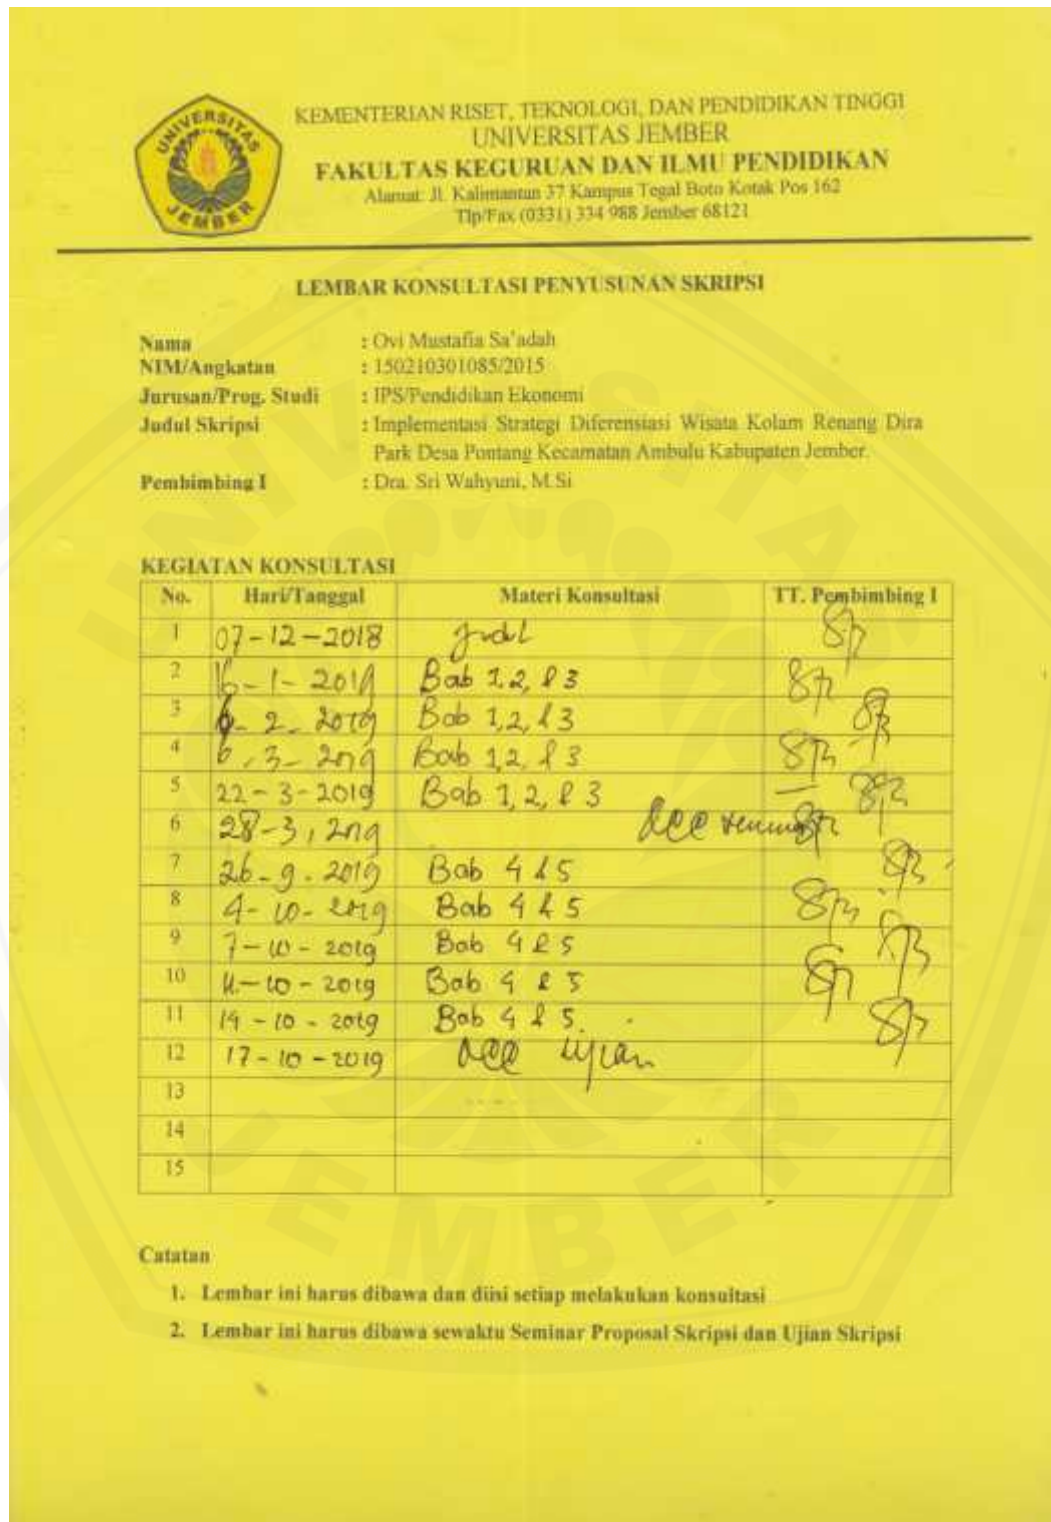 UNIVERSITAS
JEMBER
KEMENTERIAN RISET, TEKNOLOGI, DAN PENDIDIKAN TINGGI
UNIVERSITAS JEMBER
FAKULTAS KEGURUAN DAN ILMU PENDIDIKAN
Alamat: Jl. Kalimantan 37 Kampus Tegal Boto Kotak Pos 162
Tlp/Fax (0331) 334 988 Jember 68121
LEMBAR KONSULTASI PENYUSUNAN SKRIPSI
Nama : Ovi Mustafia Sa'adah
NIM/Angkatan : 150210301085/2015
Jurusan/Prog. Studi : IPS/Pendidikan Ekonomi
Judul Skripsi : Implementasi Strategi Diferensiasi Wisata Kolam Renang Dira
Park Desa Pontang Kecamatan Ambulu Kabupaten Jember.
Pembimbing I : Dra. Sri Wahyuni, M.Si
KEGIATAN KONSULTASI
No. Hari/Tanggal Materi Konsultasi TT. Pembimbing I
1 07-12-2018 Judul
2 16-1-2019 Bab 1,2, & 3
3 6-2-2019 Bab 1,2, & 3
4 6-3-2019 Bab 1,2, & 3
5 22-3-2019 Bab 1,2, & 3
6 28-3, 2019 ACC seminar
7 26-9-2019 Bab 4 & 5
8 4-10-2019 Bab 4 & 5
9 7-10-2019 Bab 4 & 5
10 11-10-2019 Bab 4 & 5
11 14-10-2019 Bab 4 & 5.
12 17-10-2019 ACC Ujian
13
14
15
Catatan
1. Lembar ini harus dibawa dan diisi setiap melakukan konsultasi
2. Lembar ini harus dibawa sewaktu Seminar Proposal Skripsi dan Ujian Skripsi
UNIVERSITAS
JEMBER